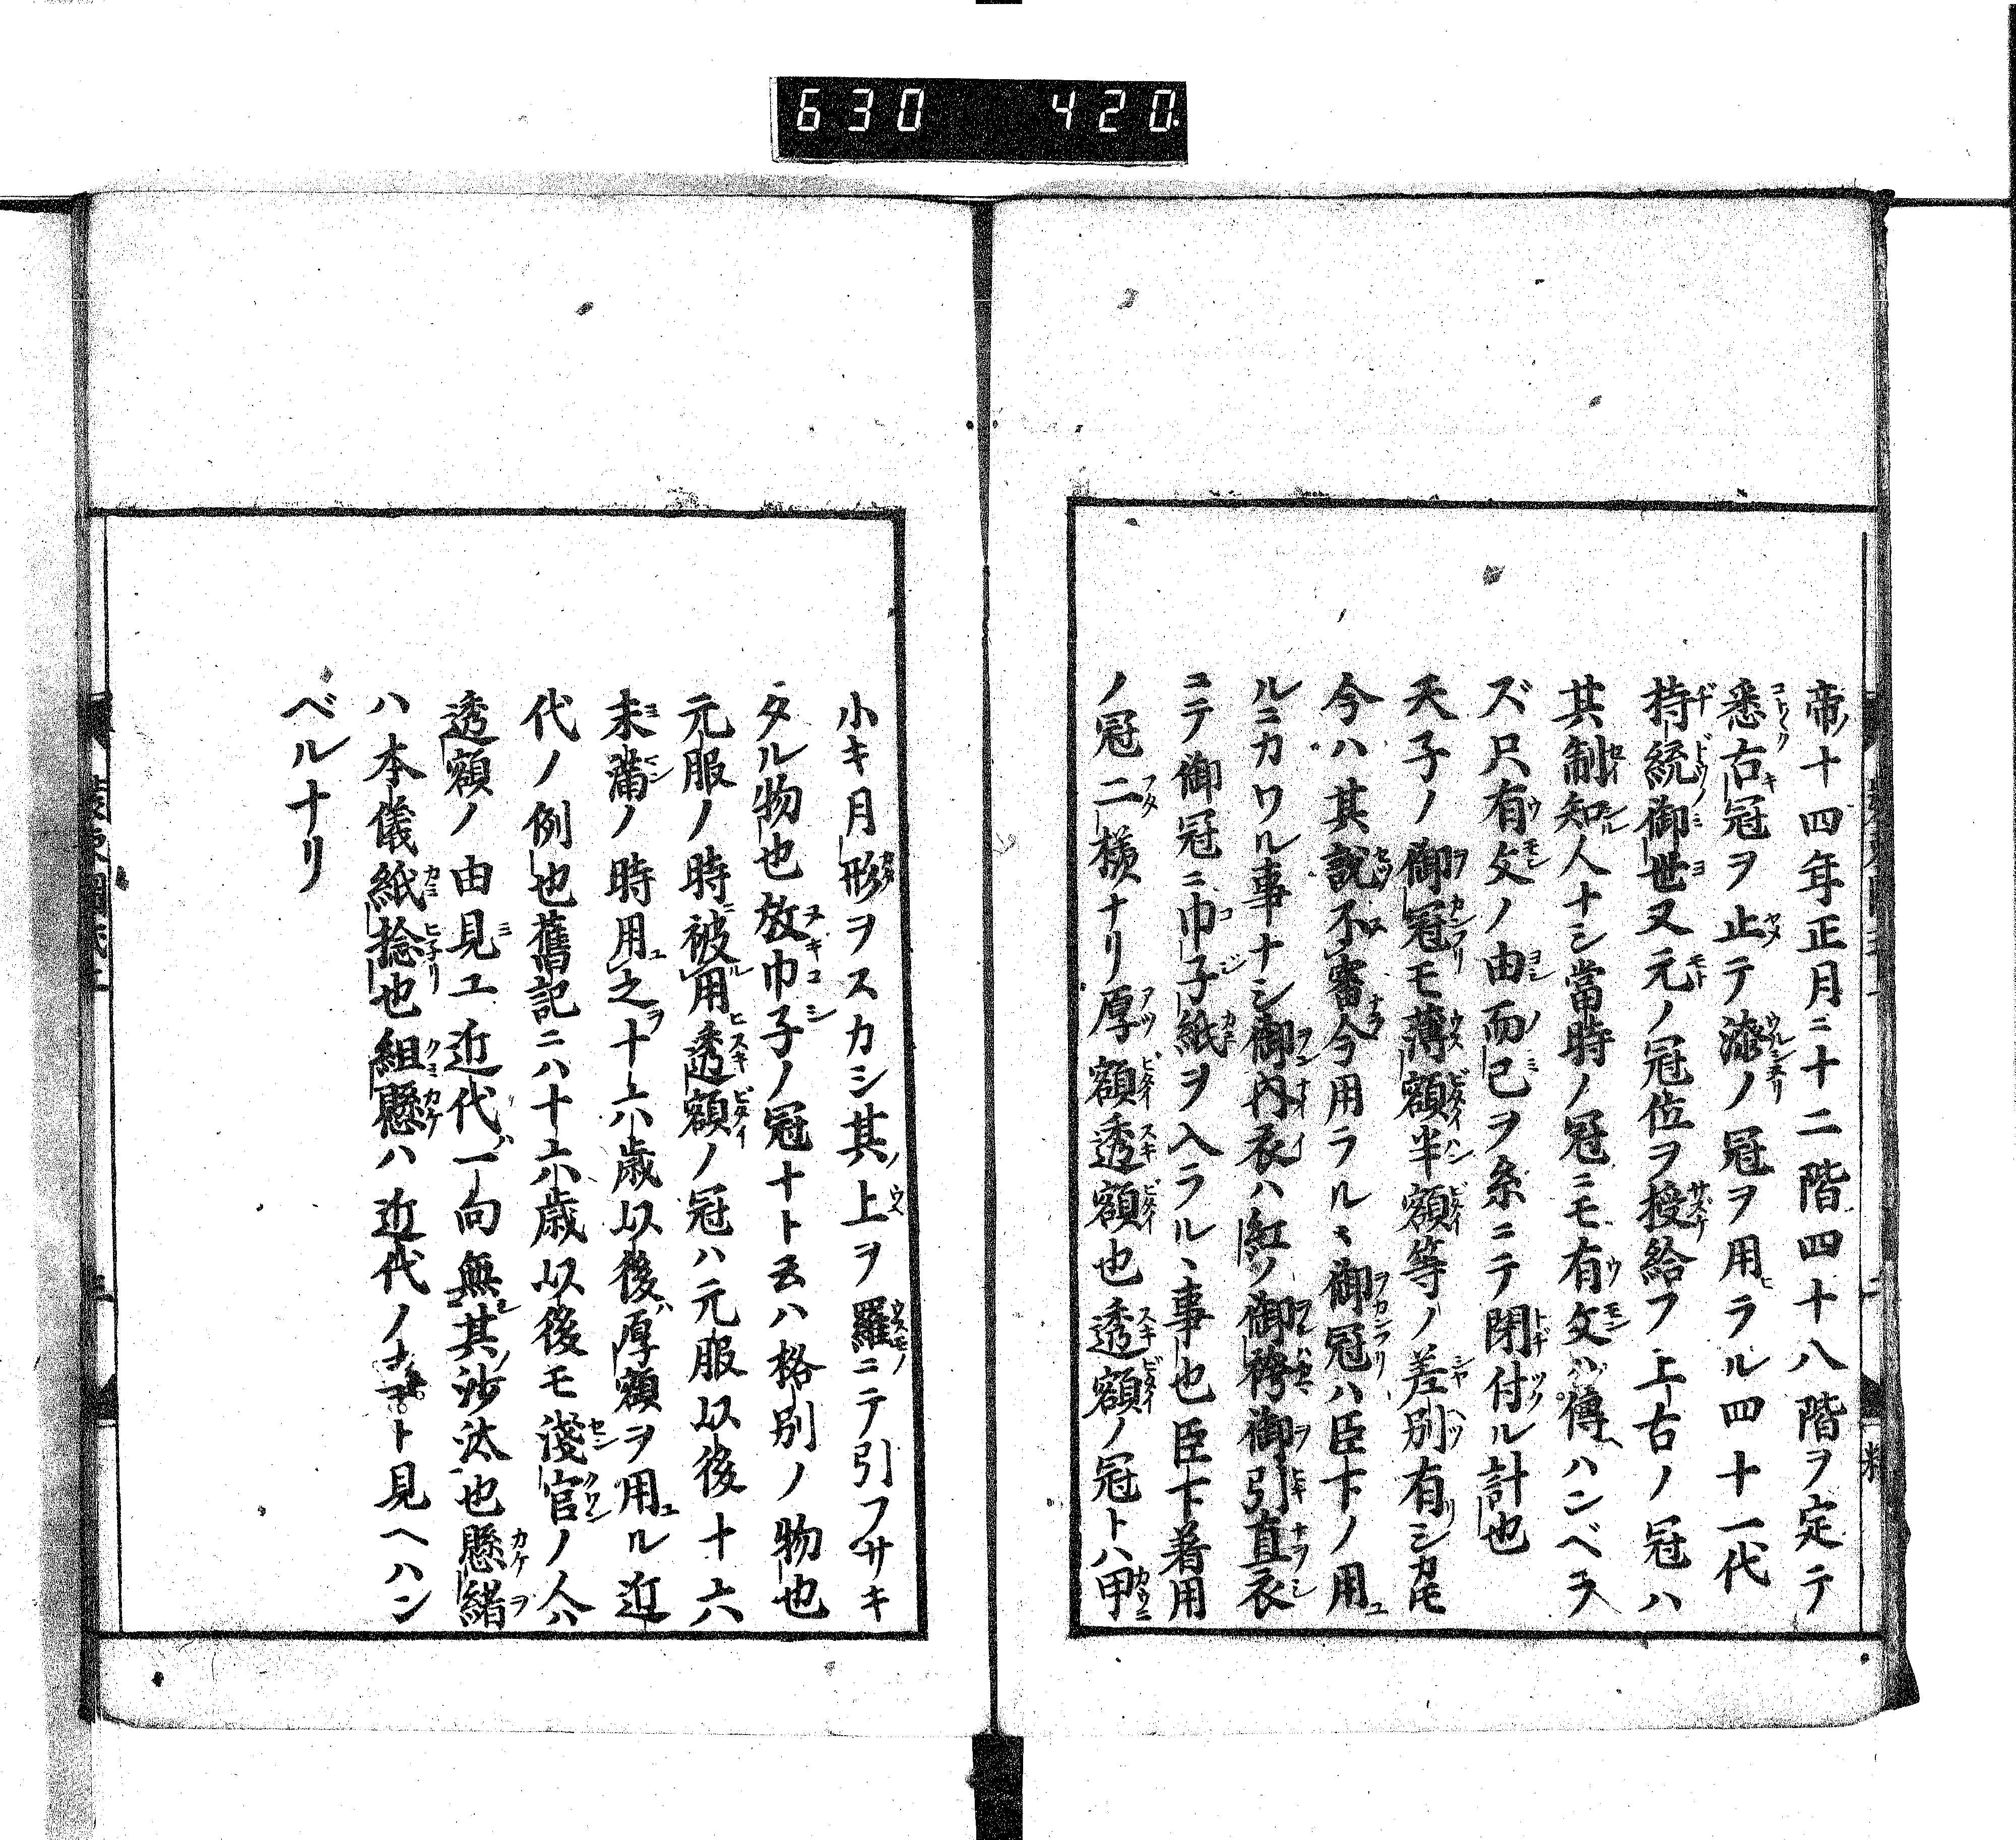 630 420
帝十四年正月ニ十二階四十八階ヲ定テ
悉右冠ヲ止テ漆ノ冠ヲ用ラル四十一代
持統御世又元ノ冠位ヲ授給フ上古ノ冠ハ
其制知人ナシ當時ノ冠ニモ有文ハ得ハンベラ
ズ只有文ノ由而已ヲ糸ニテ閉付ル計也
天子ノ御冠モ薄額半額等ノ差別有シカモ
今ハ其説不審今用ラルヽ御冠ハ臣下ノ用
ルニカワル事ナシ御内衣ハ紅ノ御袴御引直衣
ニテ御冠ニ巾子紙ヲ入ラルヽ事也臣下着用
ノ冠二様ナリ厚額透額也透額ノ冠トハ甲
小キ月形ヲスカシ其上ヲ羅ニテ引フサキ
タル物也放巾子ノ冠ナト云ハ格別ノ物也
元服ノ時被用透額ノ冠ハ元服以後十六
未滿ノ時用之十六歳以後厚額ヲ用ル近
代ノ例也舊記ニハ十六歳以後モ淺官ノ人ハ
透額ノ由見エ近代一向無其沙汰也懸緒
ハ本儀紙捻也組懸ハ近代ノ ト見ヘハン
ベルナリ